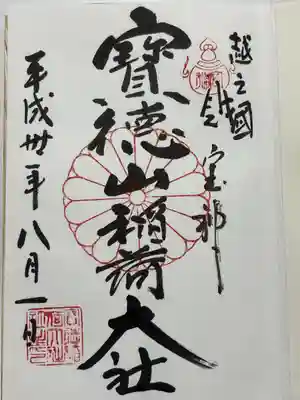 越之國
寳徳山稲荷大社
平成卅年八月一日